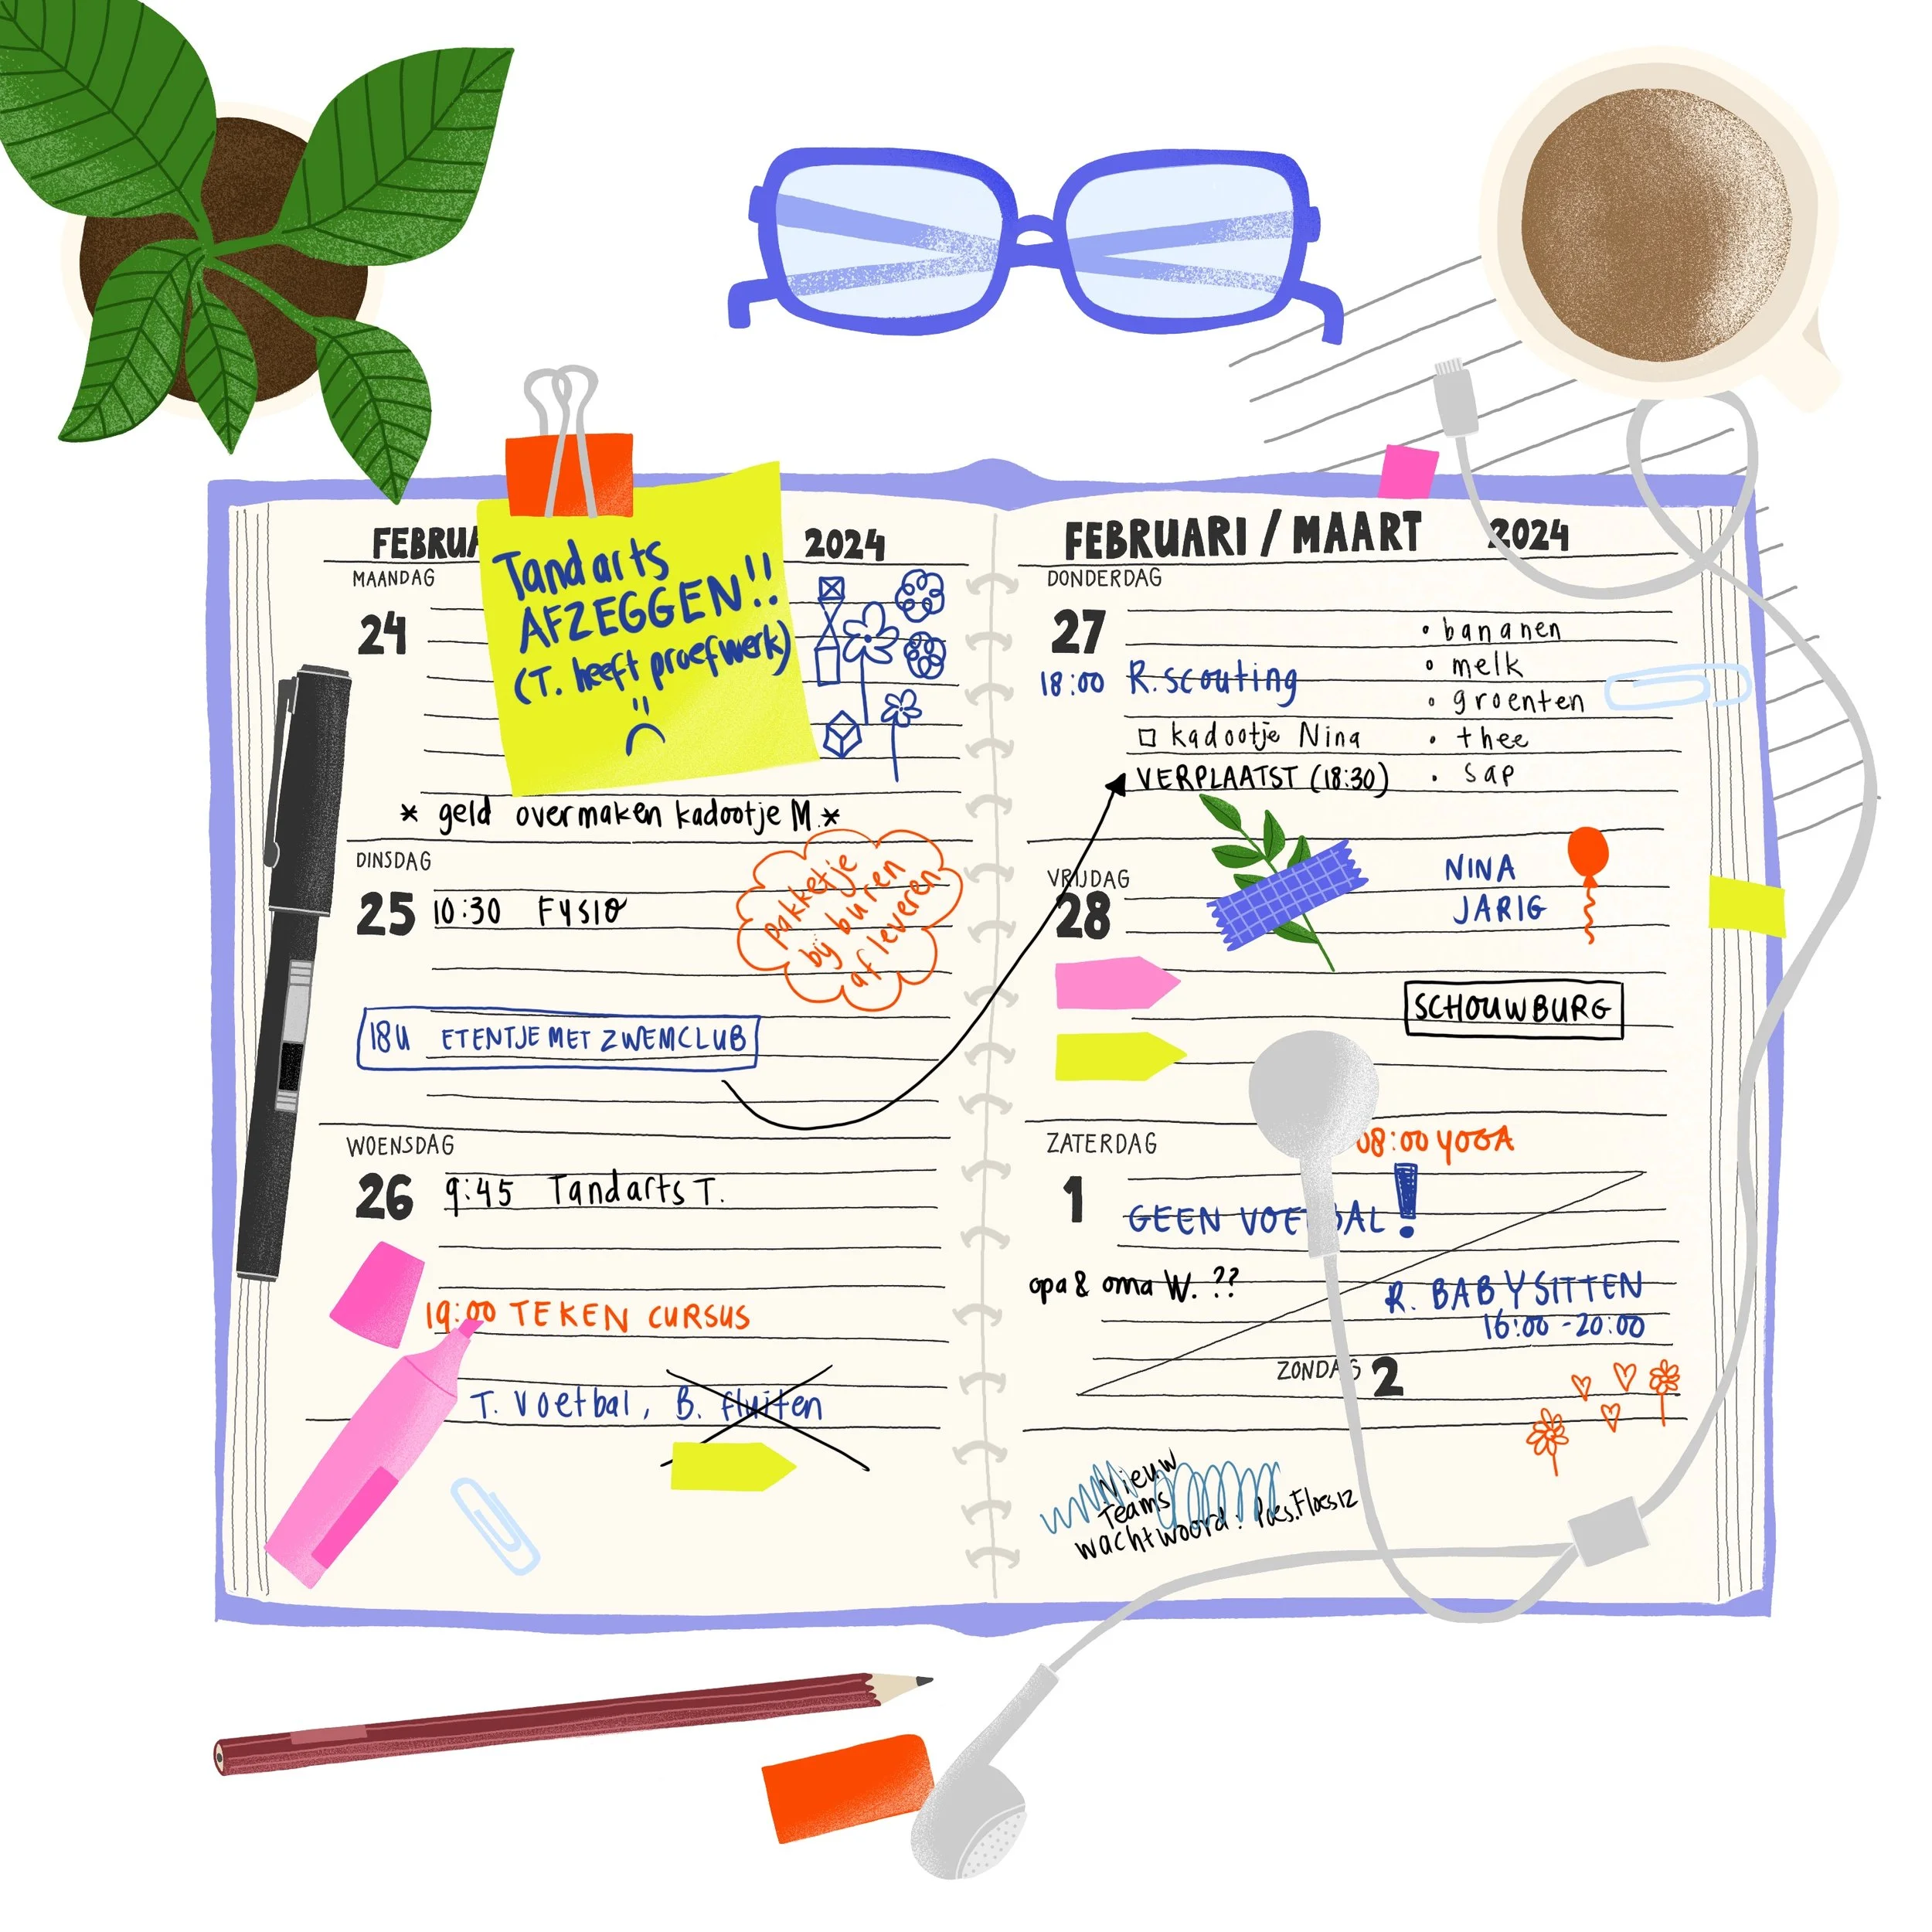 FEBRUA 2024
MAANDAG
24
Tandarts
AFZEGGEN!!
(T. heeft proefwerk)
* geld overmaken kadootje M.*
DINSDAG
25 10:30 Fysio
pakketje
bij buren
afleveren
18u ETENTJE MET ZWEMCLUB
WOENSDAG
26 9:45 Tandarts T.
19:00 TEKEN CURSUS
T. Voetbal, B. fluiten
FEBRUARI / MAART 2024
DONDERDAG
27
18:00 R. scouting
□ kadootje Nina
VERPLAATST (18:30)
• bananen
• melk
• groenten
• thee
• sap
VRIJDAG
28
NINA
JARIG
SCHOUWBURG
ZATERDAG
08:00 YOGA
1
GEEN VOETBAL!
opa & oma W. ??
R. BABYSITTEN
16:00 - 20:00
ZONDAG 2
Nieuw
Teams
wachtwoord: